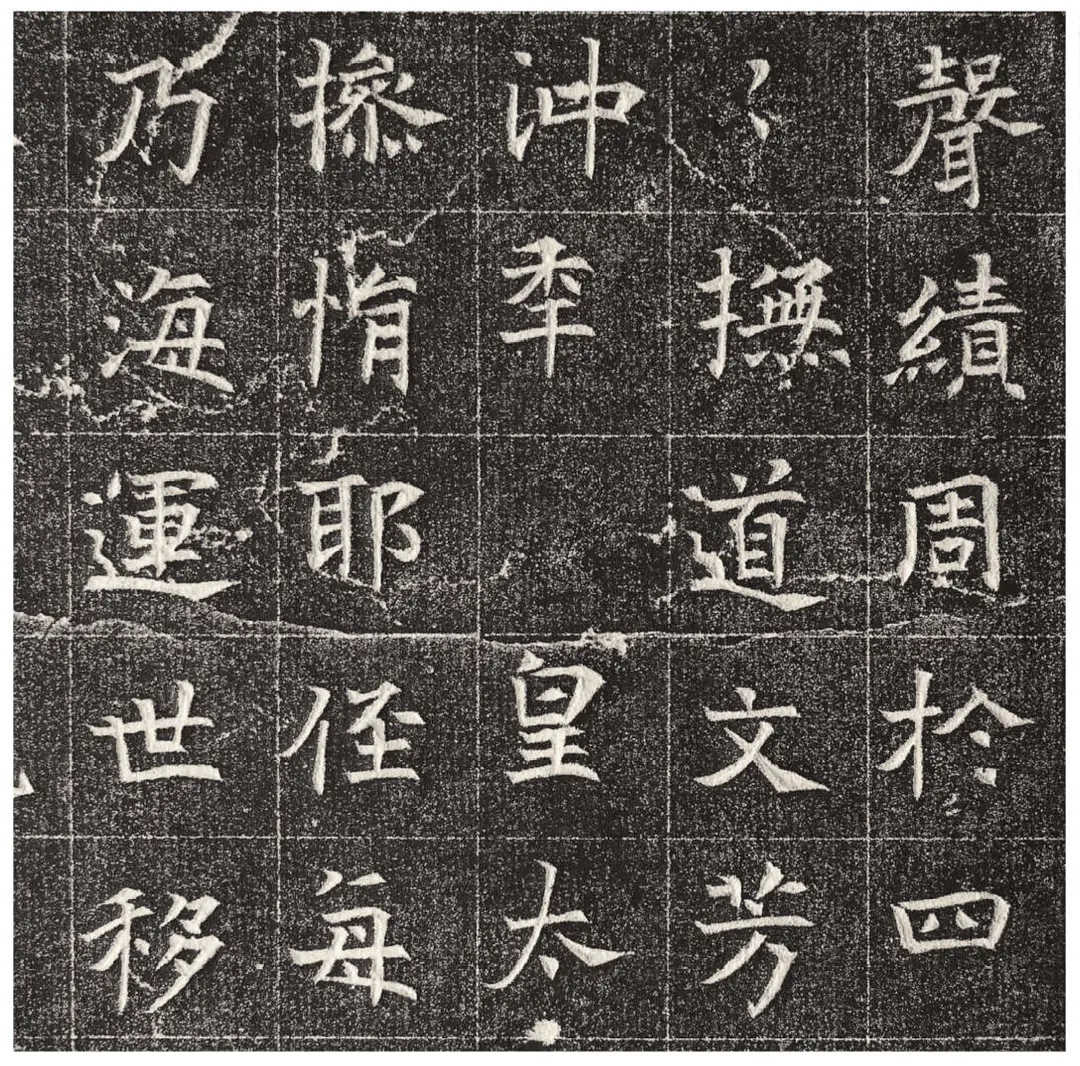 聲績周於四
〻撫道文芳
沖秊 皇太
操惰耶侄每
乃海運世移